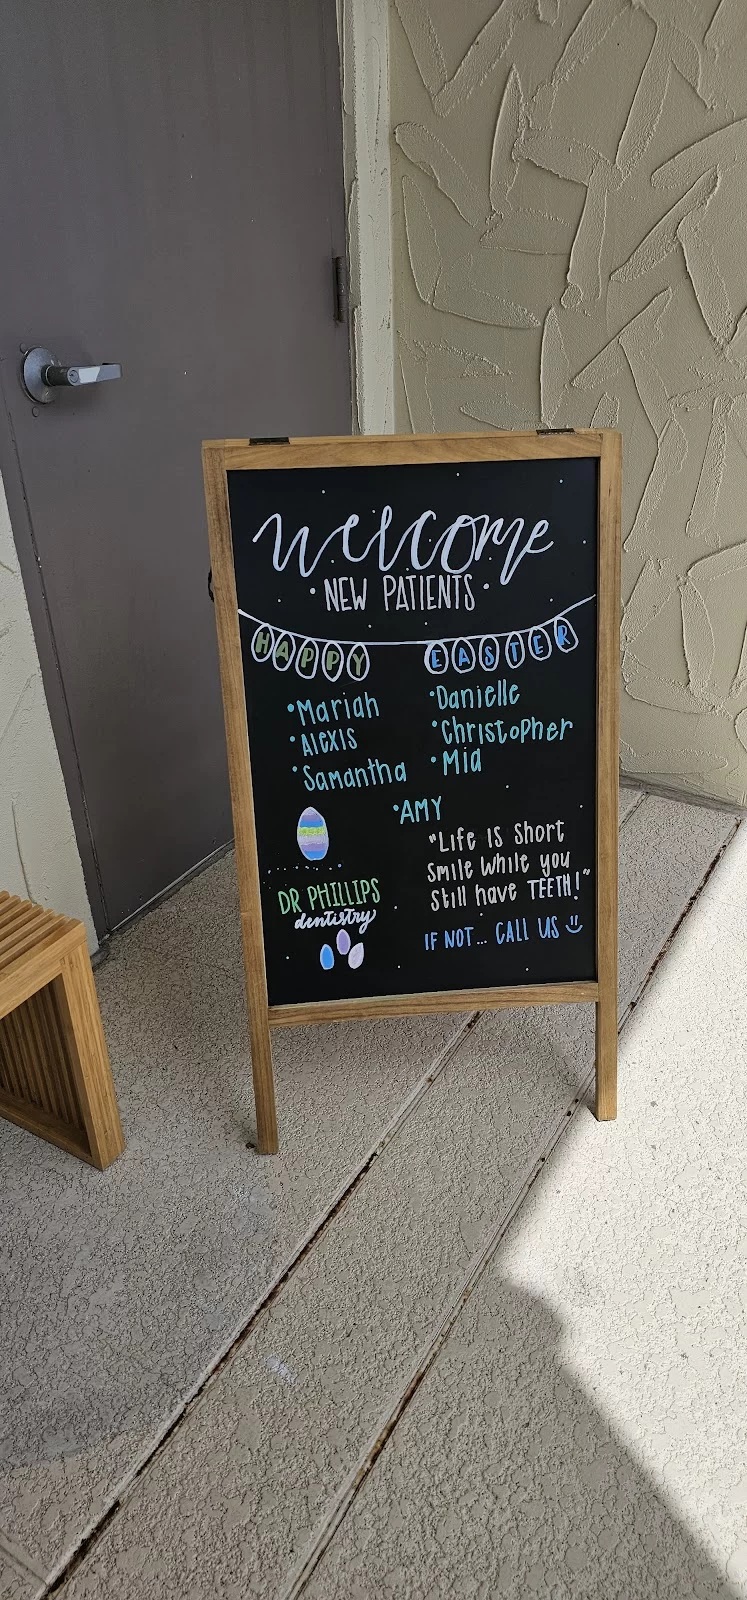 welcome
• NEW PATIENTS •
HAPPY EASTER
• Mariah
• Alexis
• Samantha
• Danielle
• Christopher
• Mia
• AMY
"Life is short
smile while you
still have TEETH!"
IF NOT... CALL US
DR PHILLIPS
dentistry